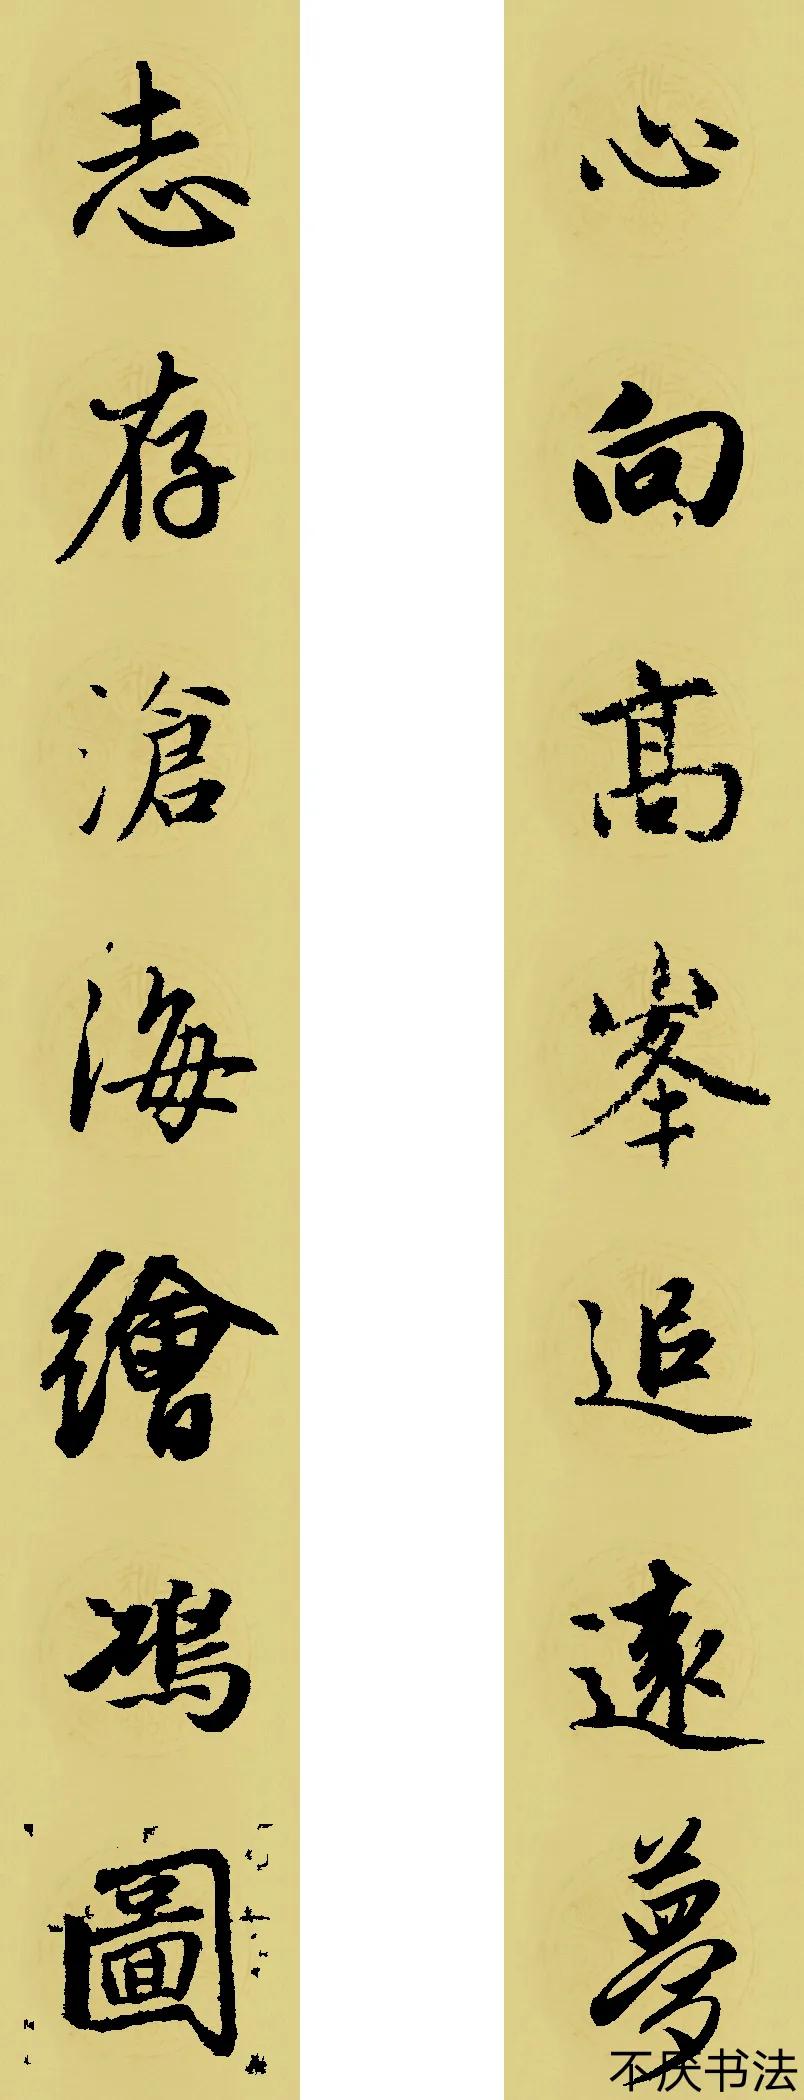 心向高峯追遠夢
志存滄海繪鴻圖
不厌书法